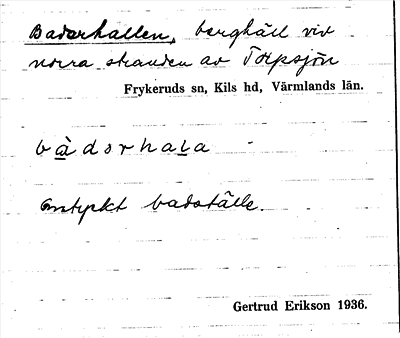 Badarhallen, berghäll vid
norra stranden av Torpsjön
Frykeruds sn, Kils hd, Värmlands län.
bàdərhala
Omtyckt badställe.
Gertrud Erikson 1936.